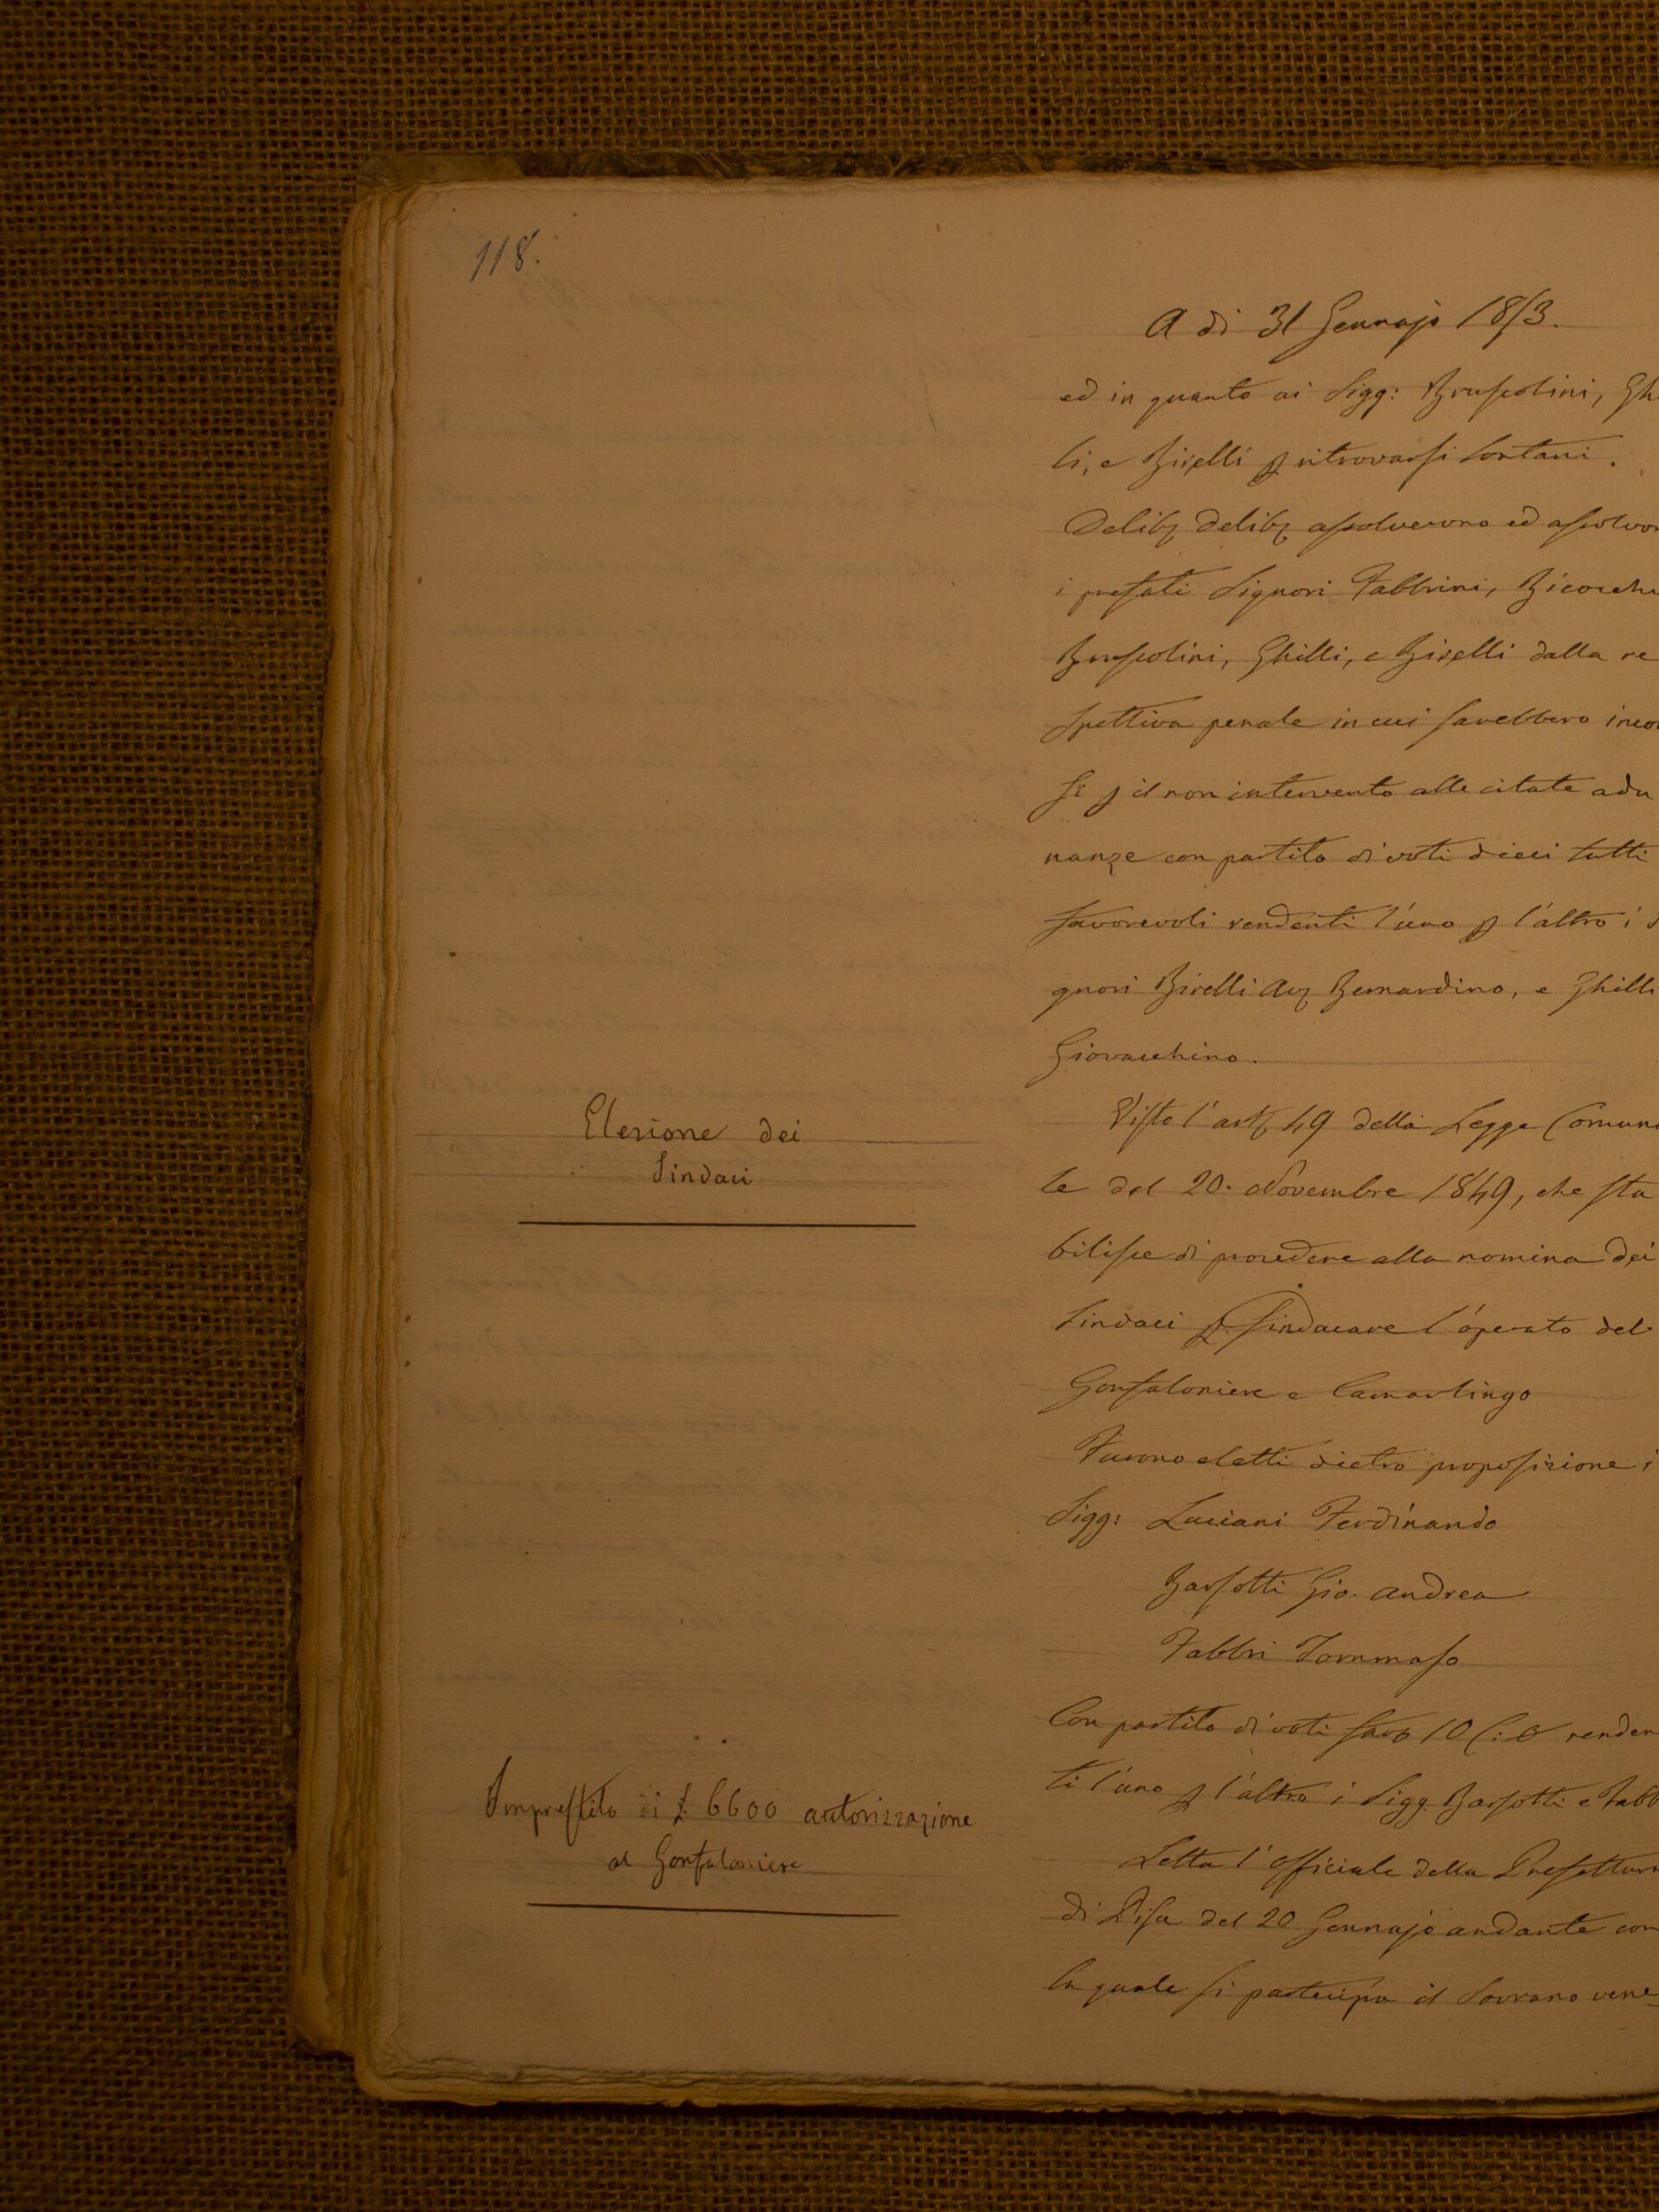 118.
A dì 31 Gennajo 1853.
ed in quanto ai Sigg: Bruscolini, Gh
li, e Birelli p ritrovarsi lontani.
Delib delib assolverono ed assolvon
i prefati Signori Fabbrini, Bicocchi
Bruscolini, Ghilli, e Birelli dalla re
spettiva penale in cui sarebbero incor
si p il non intervento alle citate adu
nanze con partito di voti dieci tutti
favorevoli rendenti l'uno p l'altro i S
gnori Birelli Avv Bernardino, e Ghilli
Giovacchino.
Elezione dei
Sindaci
Visto l'art 49 della Legge Comuna
le del 20. Novembre 1849, che sta
bilisce di procedere alla nomina dei
Sindaci p sindacare l'operato del
Gonfaloniere e Camarlingo
Furono eletti dietro proposizione i
Sigg: Luciani Ferdinando
Barsotti Gio. Andrea
Fabbri Tommaso
Con partito di voti favo 10 C: 0 renden
ti l'uno p l'altro i Sigg. Barsotti e Fabb
Imprestito di £ 6600 autorizzazione
al Gonfaloniere
Letta l'officiale della Prefettura
di Pisa del 20 Gennajo andante con
la quale si partecipa il Sovrano vene